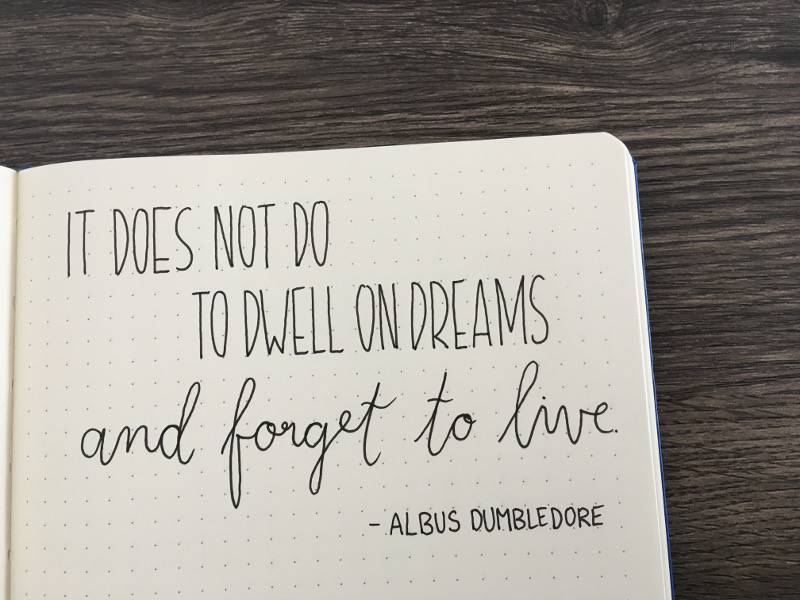 IT DOES NOT DO
TO DWELL ON DREAMS
and forget to live.
- ALBUS DUMBLEDORE